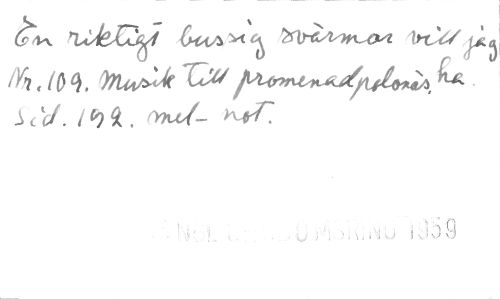 En riktigt bussig svärmor vill jag
Nr. 109. Musik till promenadpolonäs. ha.
Sid. 192. mel- not.
1959